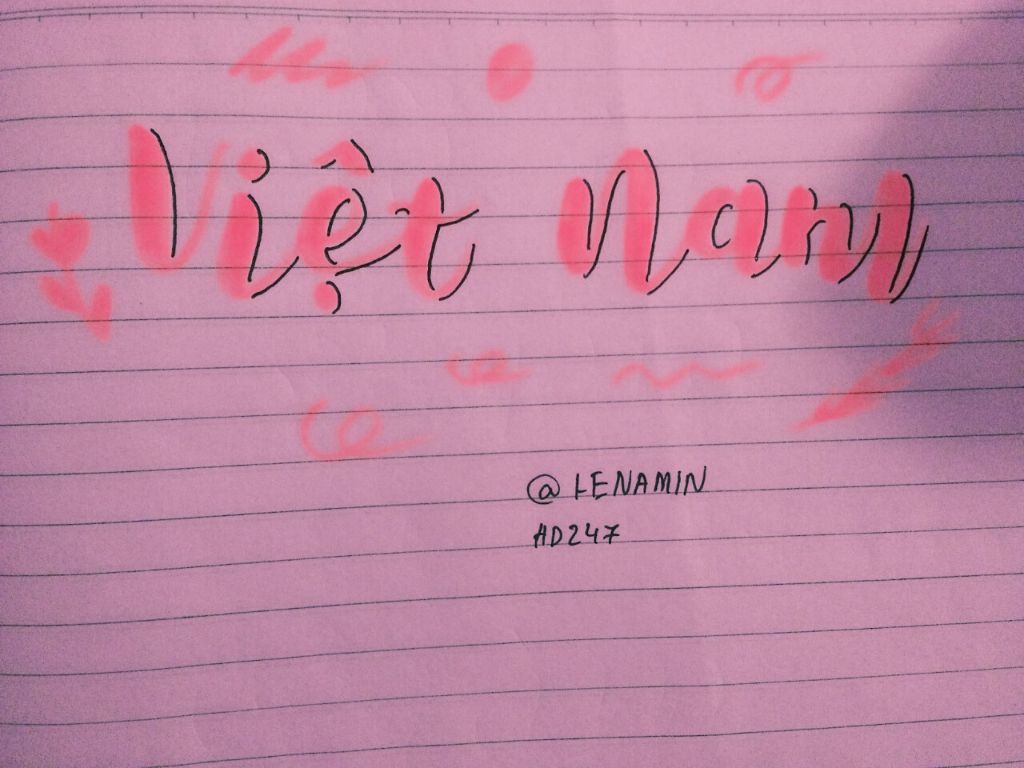 Việt Nam
@LENAMIN
HD247